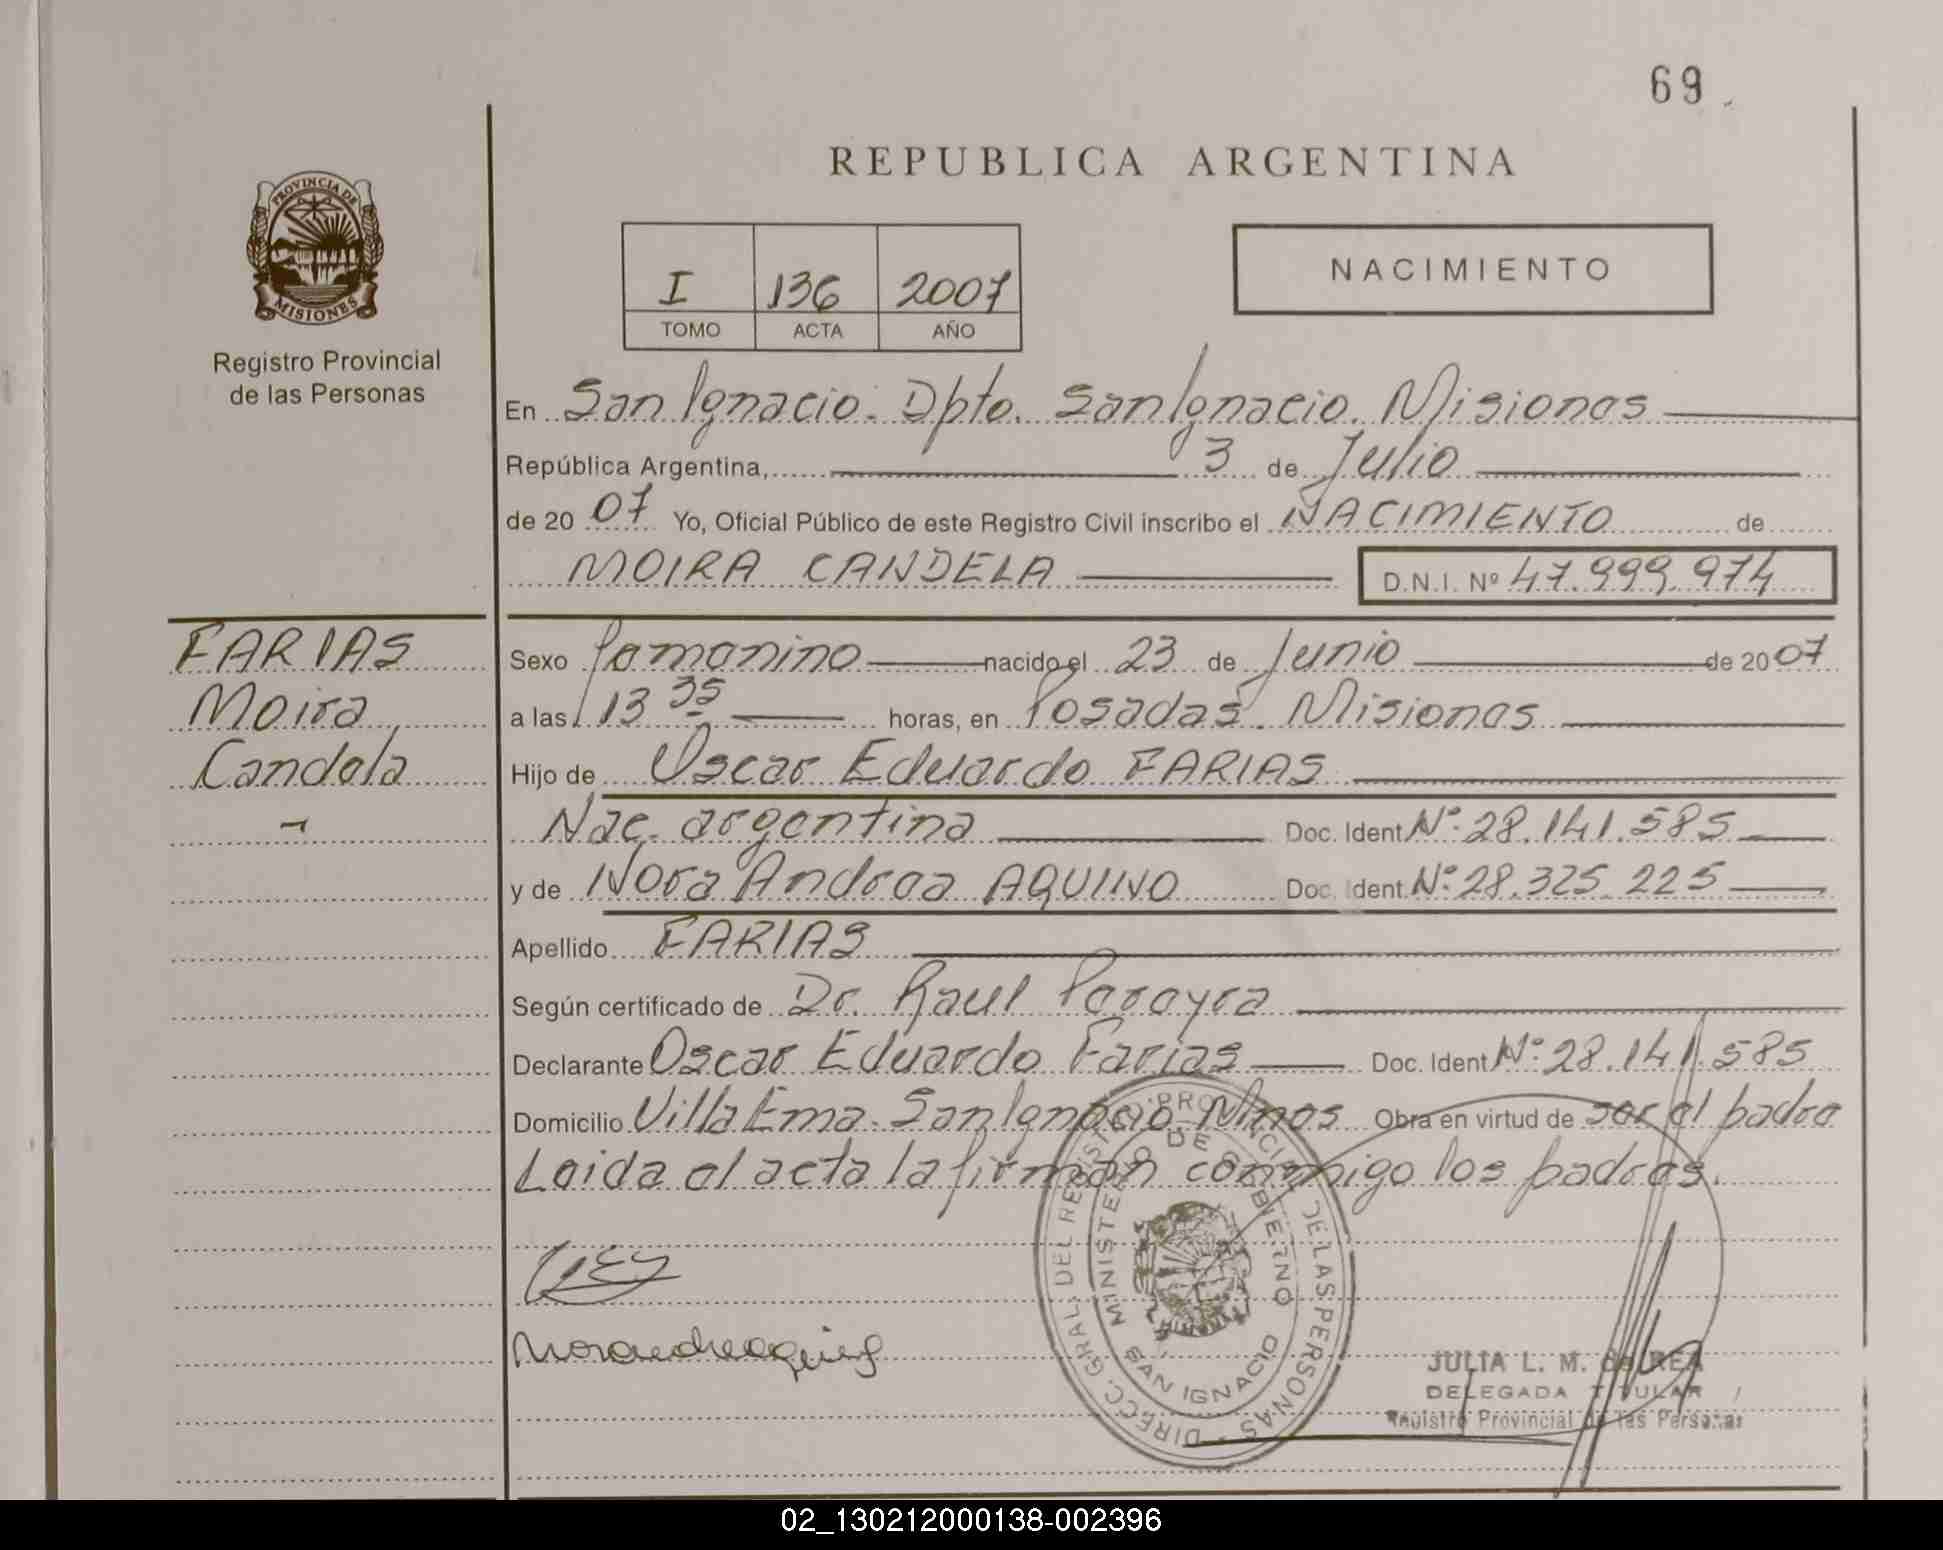 69
REPUBLICA ARGENTINA
PROVINCIA DE
MISIONES
Registro Provincial
de las Personas
I 136 2007
TOMO ACTA AÑO
NACIMIENTO
En San Ignacio. Dpto. San Ignacio. Misiones
República Argentina, 3 de Julio
de 20 07 Yo, Oficial Público de este Registro Civil inscribo el NACIMIENTO de
MOIRA CANDELA D.N.I. Nº 47.999.974
FARIAS
Moira
Candela
Sexo femenino nacido el 23 de Junio de 2007
a las 13 35 horas, en Posadas. Misiones
Hijo de Oscar Eduardo FARIAS
Nac. argentina Doc. Ident. Nº: 28.141.585
y de Nora Andrea AQUINO Doc. Ident. Nº: 28.325.225
Apellido FARIAS
Según certificado de Dr. Raul Pereyra
Declarante Oscar Eduardo Farias Doc. Ident. Nº: 28.141.585
Domicilio Villa Ema. San Ignacio. Mnes Obra en virtud de ser el padre
Leida el acta la firman conmigo los padres.
DIRECC. GRAL. DEL REGISTRO PROVINCIAL DE LAS PERSONAS
MINISTERIO DE GOBIERNO
SAN IGNACIO
JULIA L. M. de REA
DELEGADA TITULAR
Registro Provincial de las Personas
02_130212000138-002396